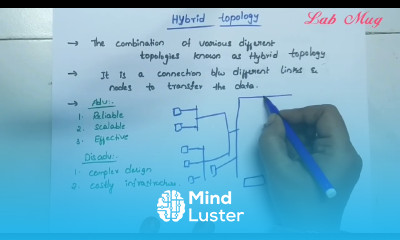 Hybrid topology
Lab Mug
→ The combination of various different
topologies known as Hybrid topology
→ It is a connection b/w different links &
nodes to transfer the data.
→ Adv:.
1. Reliable
2. Scalable
3. Effective
Disadv:.
1. complex design
2. costly infrastructure.
Mind
Luster